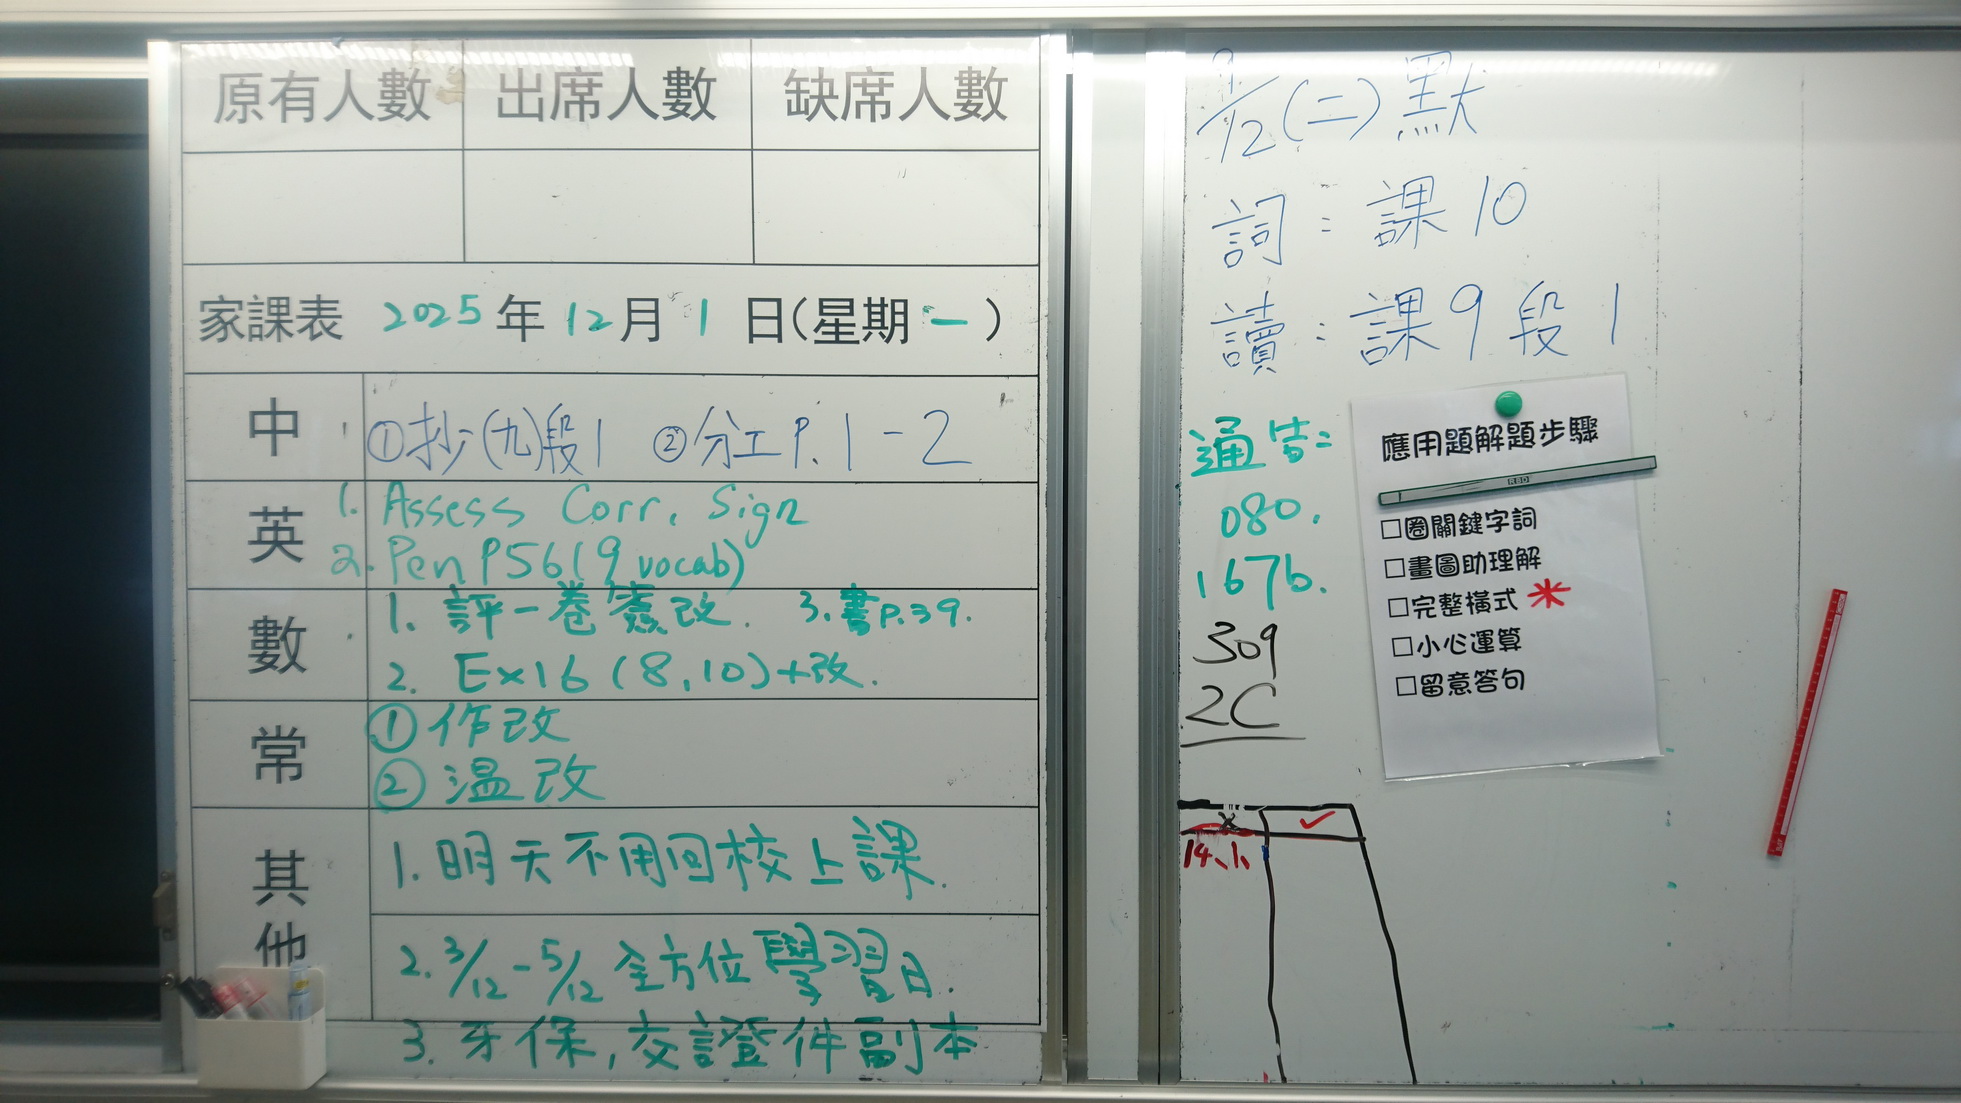 原有人數 出席人數 缺席人數
家課表 2025年12月1日(星期一)
中 ①抄(九)段1 ②分工P.1-2
英 1. Assess Corr. Sign
2. Pen P56(9 vocab)
數 1. 評一卷簽改. 3.書P.39.
2. Ex16(8,10)+改.
常 ①作改
②温改
其他 1.明天不用回校上課.
2. 3/12-5/12 全方位學習日.
3. 牙保,交證件副本
9/12(二)默
詞:課10
讀:課9段1
通告:
080.
167b.
309
2C
14、1、
應用題解題步驟
RBD
□圈關鍵字詞
□畫圖助理解
□完整橫式
□小心運算
□留意答句